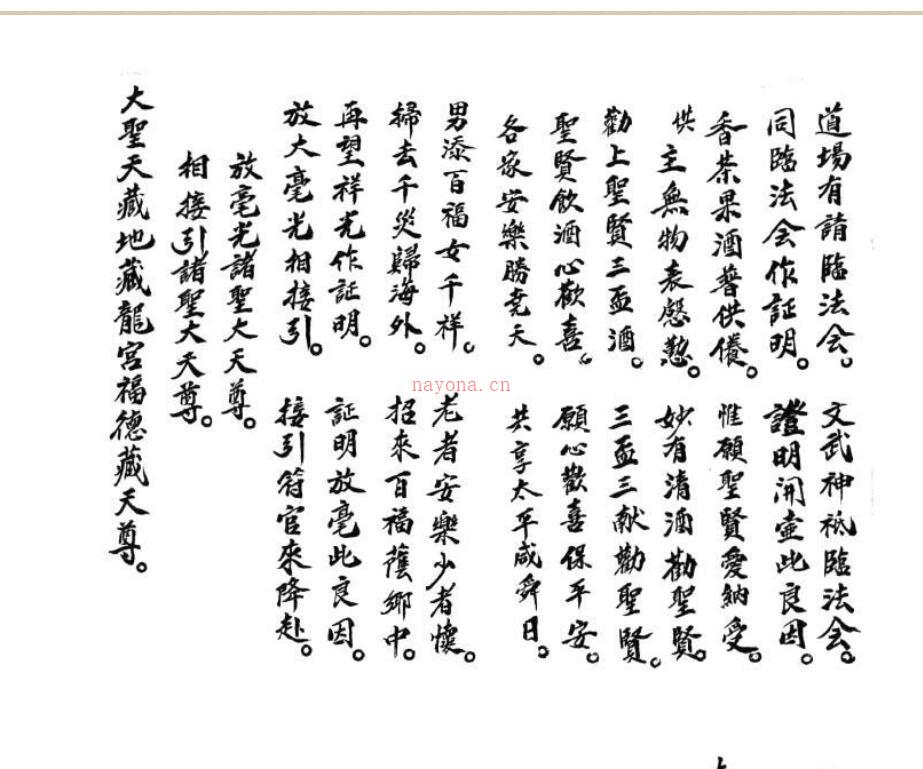 道場有請臨法会。文武神祇臨法会。
同臨法会作証明。證明開壷此良因。
香茶果酒普供養。惟願聖賢愛納受。
供主無物表慇懃。妙有清酒勸聖賢。
勸上聖賢三盃酒。三盃三献勸聖賢。
聖賢飲酒心歡喜。願心歡喜保平安。
各家安樂勝堯天。共享太平咸舜日。
男添百福女千祥。老者安樂少者懷。
掃去千災歸海外。招來百福蔭鄉中。
再望祥光作証明。証明放毫此良因。
放大毫光相接引。接引符官來降赴。
放毫光諸聖大天尊。
相接引諸聖大天尊。
大聖天藏地藏龍宮福德藏天尊。
nayona.cn